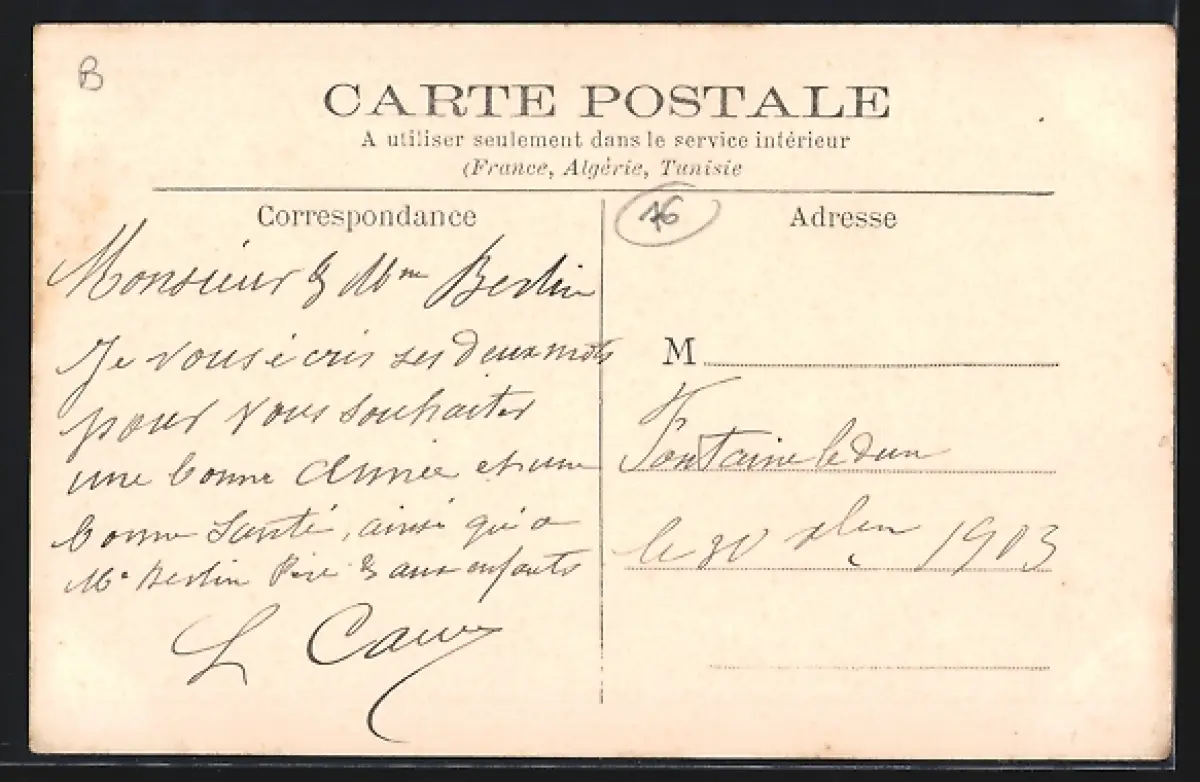 B
CARTE POSTALE
A utiliser seulement dans le service intérieur
(France, Algérie, Tunisie
Correspondance
76
Adresse
Monsieur & Mme Berlin
Je vous écris ses deux mots
pour vous souhaiter
une bonne année et une
bonne santé, ainsi qu'a
Mr Berlin Père & aux enfants
L
M
Fontaine le dun
le 1903